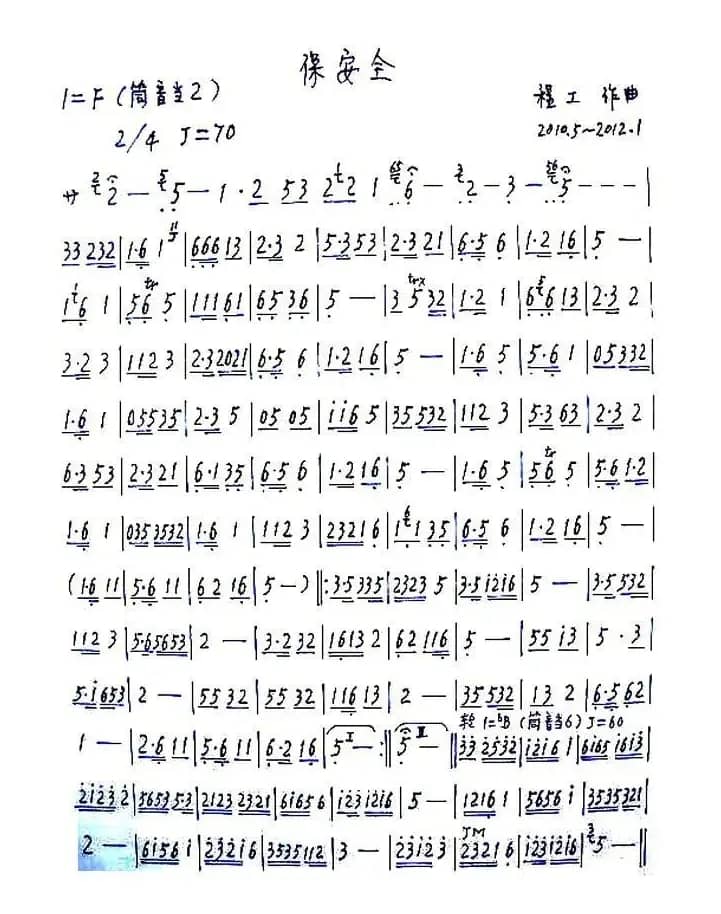 保安全
1=F（筒音当2）
程工 作曲
2/4 J=70
2010.5~2012.1
サ 2 — 5 — 1 · 2 53 2 2 1 6 — 2 — 3 — 5 - - - |
33 232 | 1·6 1 | 666 13 | 2·3 2 | 5·3 53 | 2·3 21 | 6·5 6 | 1·2 16 | 5 — |
1 6 1 | 56 5 | 111 61 | 65 36 | 5 — | 3 5 32 | 1·2 1 | 6 6 13 | 2·3 2 |
3·2 3 | 112 3 | 2·3 2021 | 6·5 6 | 1·2 16 | 5 — | 1·6 5 | 5·6 1 | 05 3332 |
1·6 1 | 05 535 | 2·3 5 | 05 05 | i i6 5 | 35 532 | 112 3 | 5·3 63 | 2·3 2 |
6·3 53 | 2·3 21 | 6·1 35 | 6·5 6 | 1·2 16 | 5 — | 1·6 5 | 56 5 | 5·6 1·2 |
1·6 1 | 035 3532 | 1·6 1 | 112 3 | 2321 6 | 1 1 35 | 6·5 6 | 1·2 16 | 5 — |
(1·6 11 | 5·6 11 | 62 16 | 5 —) ‖: 3·5 335 | 2323 5 | 3·5 i2i6 | 5 — | 3·5 532 |
112 3 | 5·6 5653 | 2 — | 3·2 32 | 1613 2 | 62 116 | 5 — | 55 i3 | 5 · 3 |
5·i 653 | 2 — | 55 32 | 55 32 | 116 13 | 2 — | 35 532 | 13 2 | 6·5 62 |
轮 1=bB（筒音当6）J=60
1 — | 2·6 11 | 5·6 11 | 6·2 16 | 5 I — :‖ 5 II — ‖ 33 2532 | i2i6 1 | 6i65 i6i3 |
2i23 2 | 5653 5·3 | 2123 2321 | 6i65 6 | i23 i2i6 | 5 — | 1216 1 | 5656 i | 3535 321 |
2 — | 6i56 i | 232i 6 | 3535 112 | 3 — | 23i2 3 | 2321 6 | i23 i2i6 | 5 — ‖